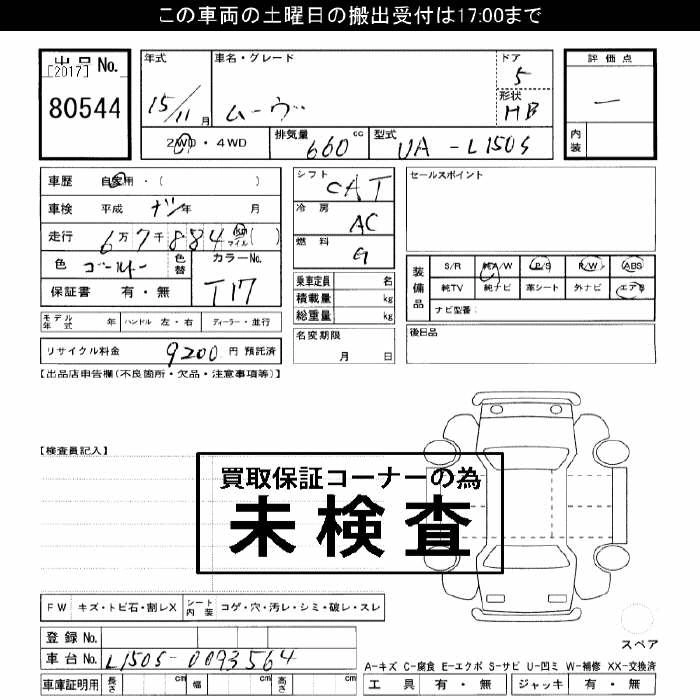 この車両の土曜日の搬出受付は17:00まで
出品 No.
[2017]
80544
年式
15/11月
車名・グレード
ムーヴ
ドア
5
形状
HB
評価点
—
内装
2WD・4WD
排気量
660 cc
型式
UA-L150S
車歴 自家用・( )
車検 平成 ナシ年 月
走行 6万7千884 km マイル ( )
色 ゴールド
色替
カラーNo.
T17
保証書 有・無
シフト
CAT
冷房
AC
燃料
G
乗車定員 名
積載量 kg
総重量 kg
セールスポイント
装備品
S/R 純A/W P/S P/W ABS
純TV 純ナビ 革シート 外ナビ エアB
ナビ型番:
モデル年式 年 ハンドル 左・右 ディーラー・並行
名変期限
月 日
後日品
リサイクル料金 9200 円 預託済
【出品店申告欄(不良箇所・欠品・注意事項等)】
【検査員記入】
買取保証コーナーの為
未検査
FW キズ・トビ石・割レX シート内装 コゲ・穴・汚レ・シミ・破レ・スレ
スペア
登録 No.
車台No. L150S-0093564
A-キズ C-腐食 E-エクボ S-サビ U-凹ミ W-補修 XX-交換済
車庫証明用 長さ cm 幅 cm 高さ cm
工具 有・無 ジャッキ 有・無